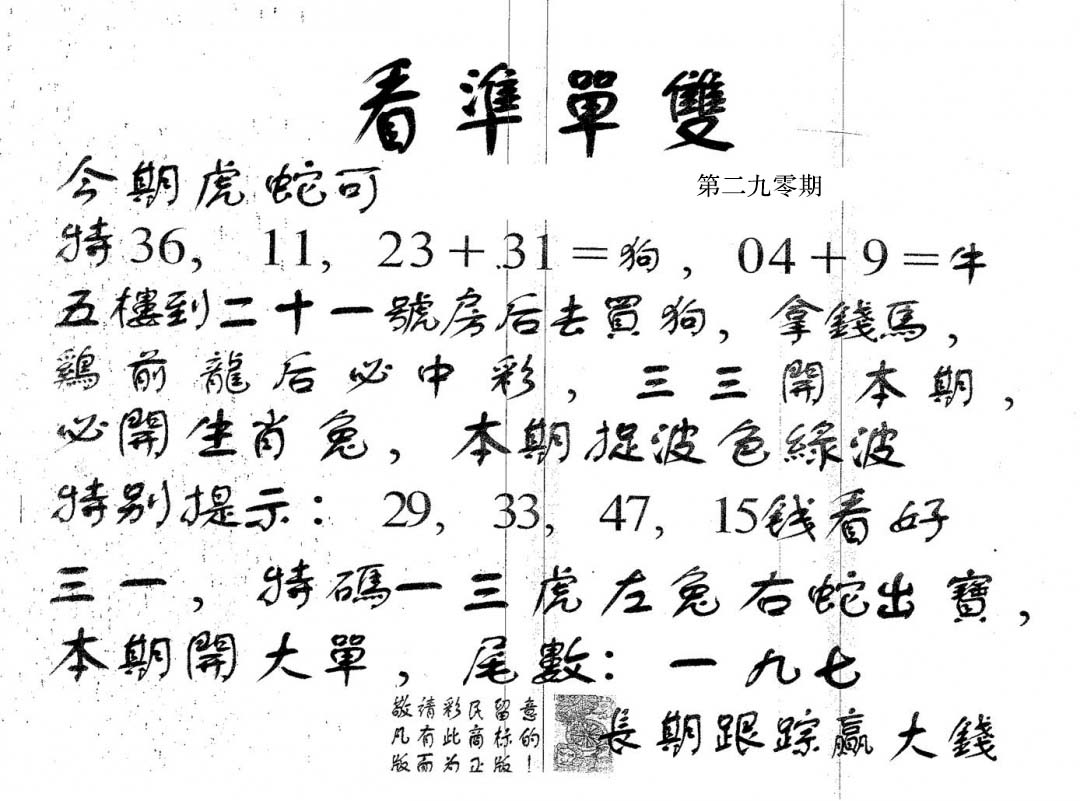 看準單雙
第二九零期
今期虎蛇可
特36, 11, 23+31=狗, 04+9=牛
五樓到二十一號房后去買狗, 拿錢馬,
鷄前龍后必中彩, 三三開本期,
必開生肖兔, 本期捉波色綠波
特别提示: 29, 33, 47, 15钱看好
三一, 特碼一三虎左兔右蛇出寶,
本期開大單, 尾數: 一九七
敬請彩民留意
凡有此商标的!
版而为正版
長期跟踪赢大錢